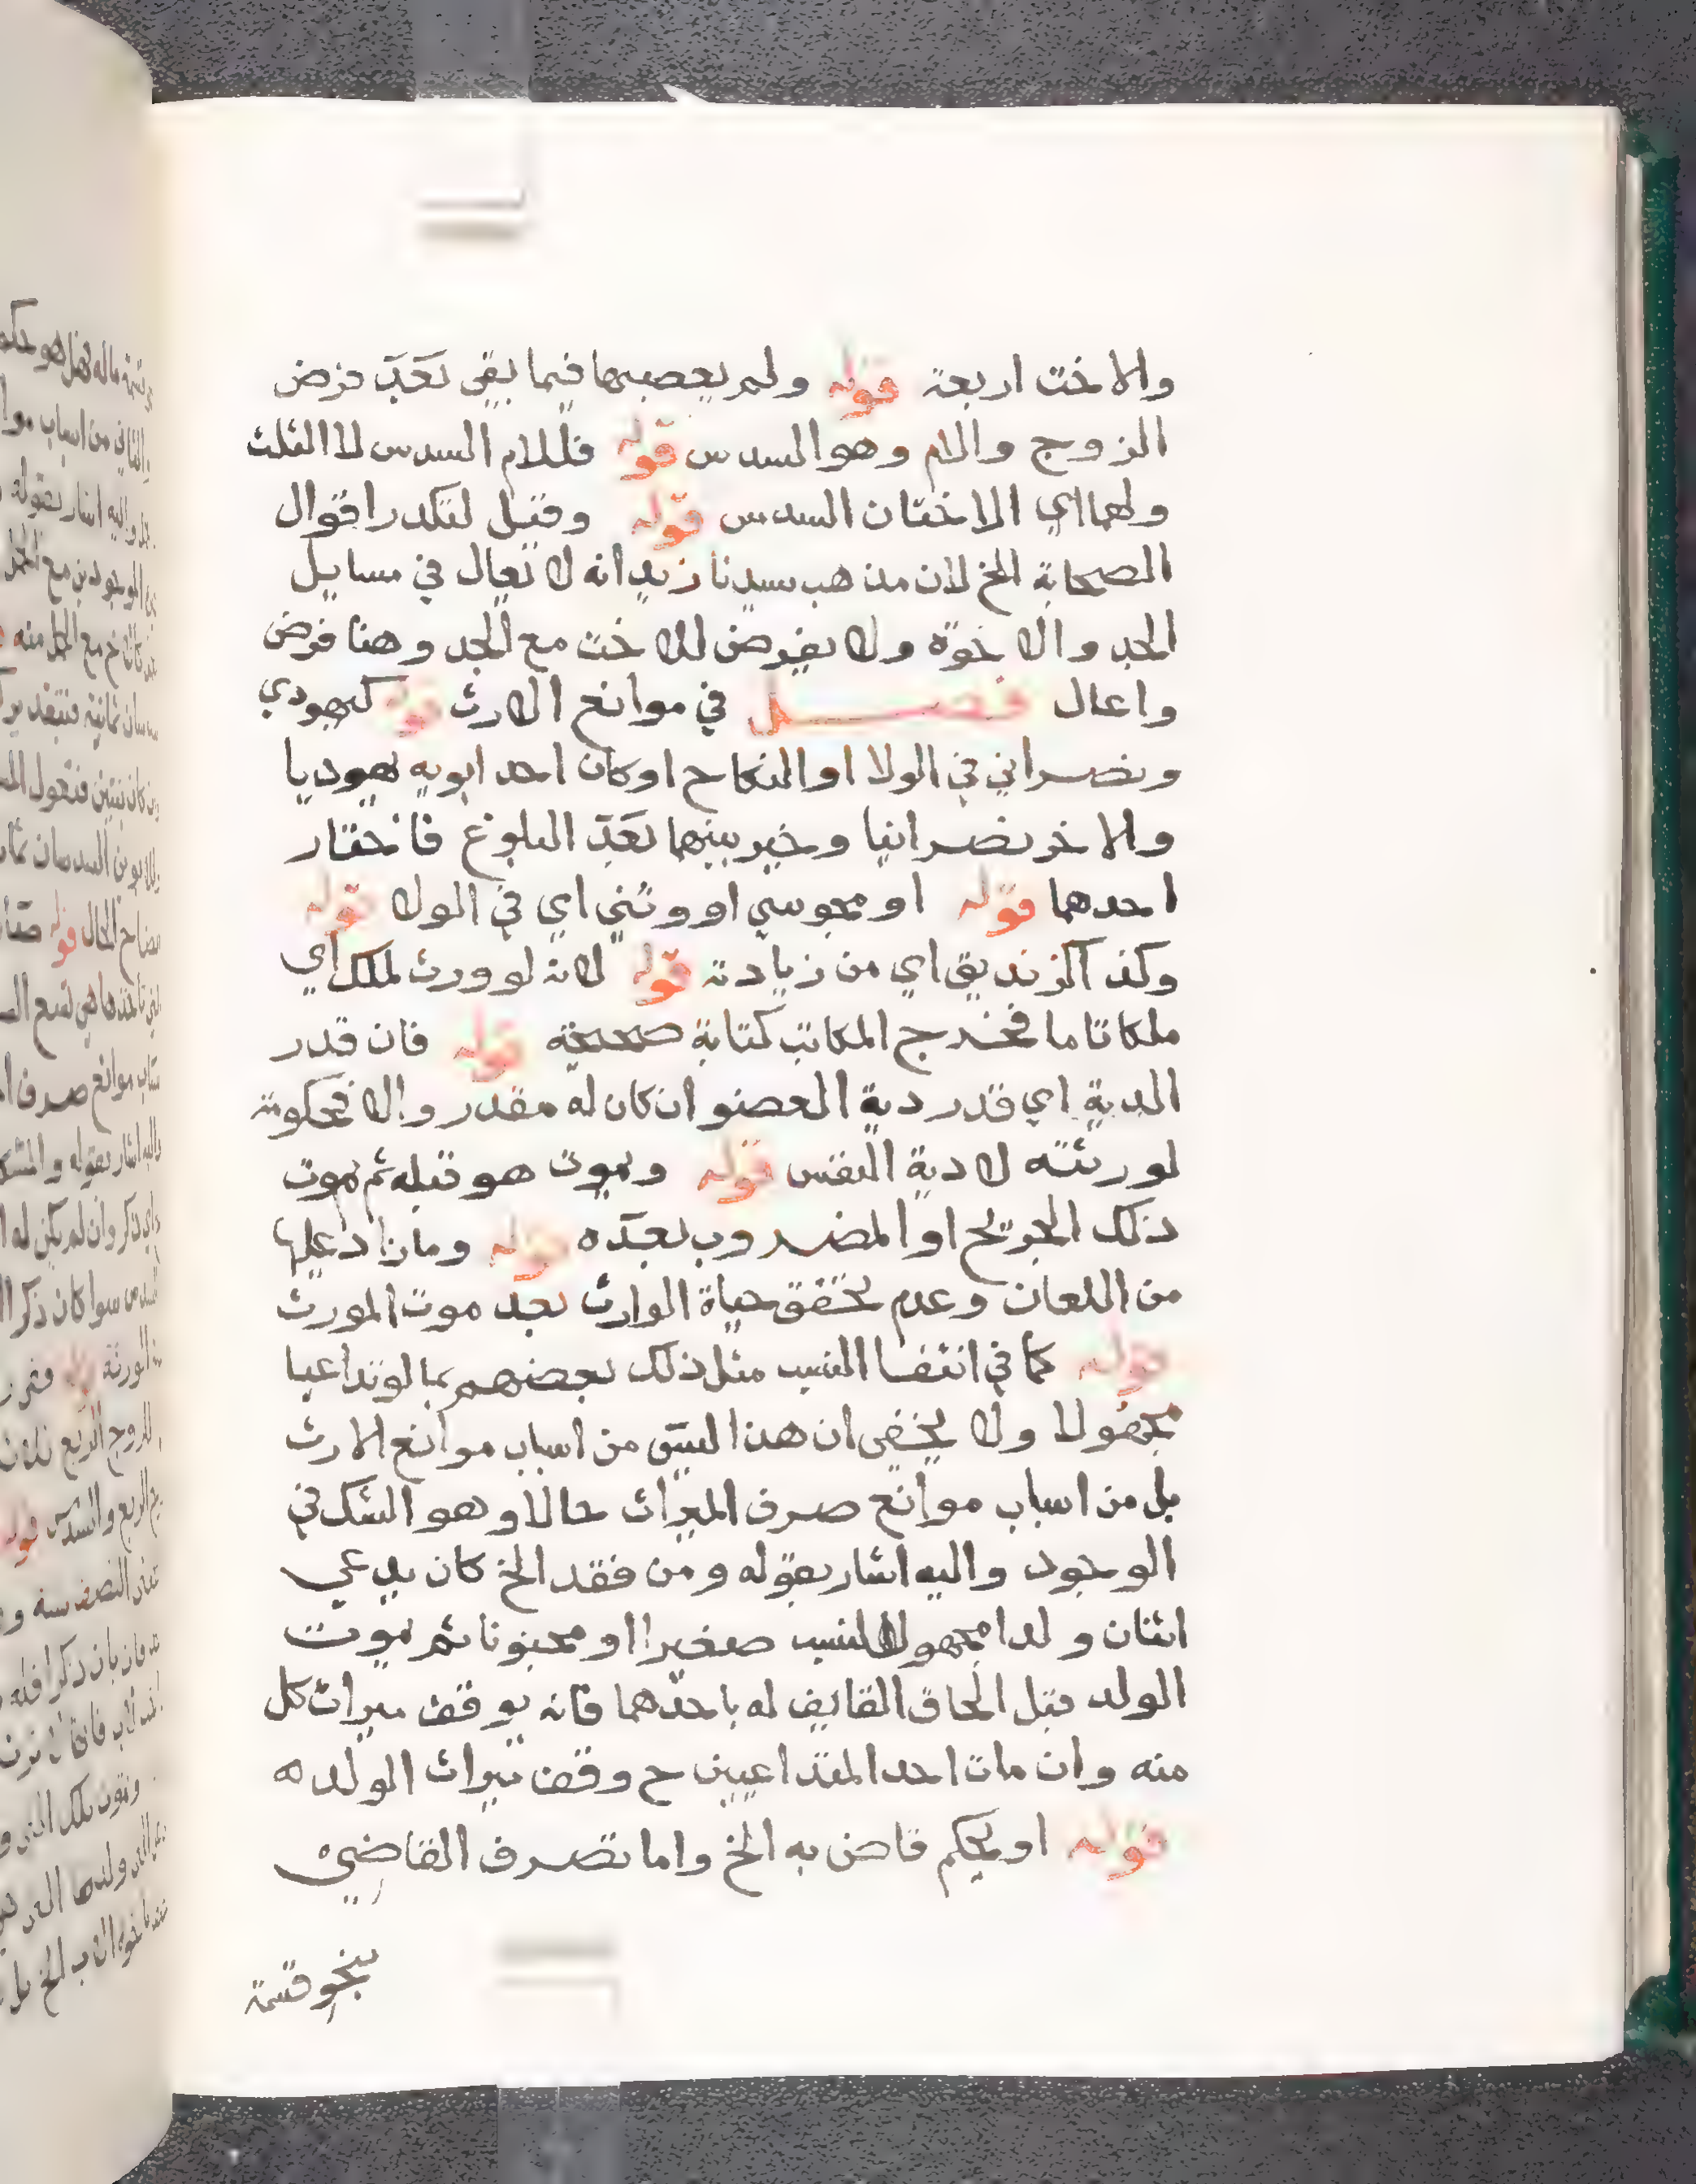 والاخت اربعة قوله ولم يعصبها فيما بقي بعد فرض
الزوج والام وهو السدس قوله فللام السدس لا الثلث
ولهما اي الاختان السدس قوله وقيل لتكدر اقوال
الصحابة الخ لان مذهب سيدنا زيد انه لا تعال في مسايل
الجد والاخوة ولا يفرض للاخت مع الجد وهنا فرض
واعال فصل في موانع الارث قوله كيهودي
ونصراني في الولا او النكاح او كان احد ابويه يهوديا
والاخر نصرانيا وخير بينهما بعد البلوغ فاختار
احدهما قوله او مجوسي او وثني اي في الولا قوله
وكذا الزنديق اي من زيادته قوله لانه لو ورث لملك اي
ملكا تاما فخرج المكاتب كتابة صحيحة قوله فان قدر
الدية اي قدر دية العضو ان كان له مقدر والا فحكومته
لورثته لا دية النفس قوله ويموت هو قبله ثم يموت
ذلك الجريح او المضروب بعده قوله وما زاد عليها
من اللعان وعدم تحقق حياة الوارث بعد موت المورث
قوله كما في انتفا النسب مثل ذلك بعضهم بما لو تداعيا
مجهولا ولا يخفى ان هذا ليس من اسباب موانع الارث
بل من اسباب موانع صرف الميراث حالا وهو الشك في
الوجود واليه اشار بقوله ومن فقد الخ كان يدعي
اثنان ولدا مجهول النسب صغيرا او مجنونا ثم يموت
الولد قبل الحاق القايف له باحدهما فانه يوقف ميراث كل
منه وان مات احد المتداعيين ح وقف ميراث الولد ه
قوله او يحكم قاض به الخ واما تصرف القاضي
بنحو قسمة